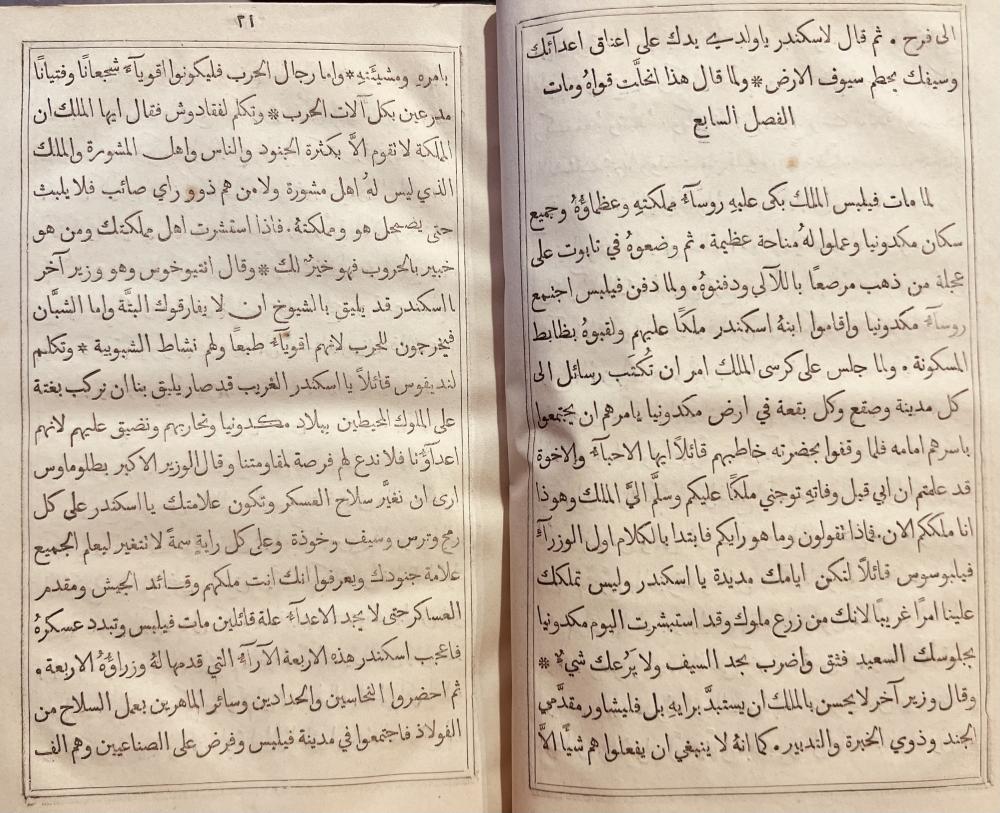 الى فرح . ثم قال لاسكندر ياولدي يدك على اعناق اعدآئك
وسيفك يحطم سيوف الارض * ولما قال هذا انحلَّت قواهُ ومات
الفصل السابع
لما مات فيلبس الملك بكى عليهِ روسآءُ مملكتهِ وعظماؤُهُ وجميع
سكان مكدونيا وعملوا لهُ مناحة عظيمة . ثم وضعوهُ في تابوت على
عجلة من ذهب مرصعًا باللآلي ودفنوهُ . ولما دفن فيلبس اجتمع
روسآءُ مكدونيا واقاموا ابنهُ اسكندر ملكًا عليهم ولقبوهُ بظابط
المسكونة . ولما جلس على كرسي الملك امر ان تُكتَب رسائل الى
كل مدينة وصقع وكل بقعة في ارض مكدونيا يامرهم ان يجتمعوا
باسرهم امامه فلما وقفوا بحضرته خاطبهم قائلاً ايها الاحبآءُ والاخوة
قد علمتم ان ابي قبل وفاتهِ توجني ملكًا عليكم وسلَّم اليَّ الملك وهوذا
انا ملككم الان . فماذا تقولون وما هو رايكم فابتدا بالكلام اول الوزرآءِ
فيلبوسوس قائلاً لتكن ايامك مديدة يا اسكندر وليس تملكك
علينا امرًا غريبًا لانك من زرع ملوك وقد استبشرت اليوم مكدونيا
بجلوسك السعيد فثق واضرب بحد السيف ولا يَرُعك شيءٌ *
وقال وزير آخر لا يحسن بالملك ان يستبدَّ برايهِ بل فليشاور مقدَّمي
الجند وذوي الخبرة والتدبير . كما انهُ لا ينبغي ان يفعلوا هم شيأً الاَّ
٢١
بامرهِ ومشيئَتهِ * واما رجال الحرب فليكونوا اقويآءَ شجعانًا وفتيانًا
مدرعين بكل آلات الحرب * وتكلم لفقادوش فقال ايها الملك ان
المملكة لا تقوم الاَّ بكثرة الجنود والناس واهل المشورة والملك
الذي ليس لهُ اهل مشورة ولا من هم ذوو راي صائب فلا يلبث
حتى يضمحل هو ومملكتهُ . فاذا استشرت اهل مملكتك ومن هو
خبير بالحروب فهو خيرٌ لك * وقال انتيوخوس وهو وزير آخر
يا اسكندر قد يليق بالشيوخ ان لا يفارقوك البتَّة واما الشبَّان
فيخرجون للحرب لانهم اقويآءُ طبعاً ولهم نشاط الشبوبية * وتكلم
لنديفوس قائلاً يا اسكندر الغريب قد صار يليق بنا ان نركب بغتة
على الملوك المحيطين ببلاد مكدونيا ونحاربهم ونضيق عليهم لانهم
اعدآؤُنا فلا ندع لهم فرصة لمقاومتنا وقال الوزير الاكبر بطلوماوس
ارى ان نغيَّر سلاح العسكر وتكون علامتك يا اسكندر على كل
رمح وترس وسيف وخوذة وعلى كل رايةٍ سمةً لا تتغير ليعلم الجميع
علامة جنودك ويعرفوا انك انت ملكهم وقائد الجيش ومقدم
العساكر حتى لا يجد الاعدآءُ علة قائلين مات فيلبس وتبدد عسكرهُ
فاعجب اسكندر هذه الاربعة الآرآءِ التي قدمها لهُ وزراؤُهُ الاربعة .
ثم احضروا النحاسين والحدادين وسائر الماهرين بعمل السلاح من
الفولاذ فاجتمعوا في مدينة فيلبس وفرض على الصناعيين وهم الف